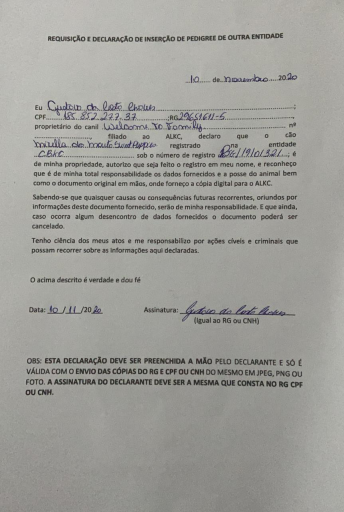 REQUISIÇÃO E DECLARAÇÃO DE INSERÇÃO DE PEDIGREE DE OUTRA ENTIDADE
10 de novembro 2020
Eu
CPF
proprietário do canil Welcome To Family nº
, filiado ao ALKC, declaro que o cão
registrado na entidade
CBKC sob o número de registro ; é
de minha propriedade, autorizo que seja feito o registro em meu nome, e reconheço
que é de minha total responsabilidade os dados fornecidos e a posse do animal bem
como o documental original em mãos, onde forneço a cópia digital para o ALKC.
Sabendo-se que quaisquer causas ou consequências futuras recorrentes, oriundos por
informações deste documento fornecido, serão de minha responsabilidade. E que ainda,
caso ocorra algum desencontro de dados fornecidos o documento poderá ser
cancelado.
Tenho ciência dos meus atos e me responsabilizo por ações cíveis e criminais que
possam recorrer as informações aqui declaradas.
O acima descrito é verdade e dou fé
Data: 10/11/2020 Assinatura:
(Igual ao RG ou CNH)
OBS: ESTA DECLARAÇÃO DEVE SER PREENCHIDA A MÃO PELO DECLARANTE E SÓ É
VÁLIDA COM O ENVIO DAS CÓPIAS DO RG E CPF OU CNH DO MESMO EM JPEG, PNG OU
FOTO. A ASSINATURA DO DECLARANTE DEVE SER A MESMA QUE CONSTA NO RG CPF
OU CNH.